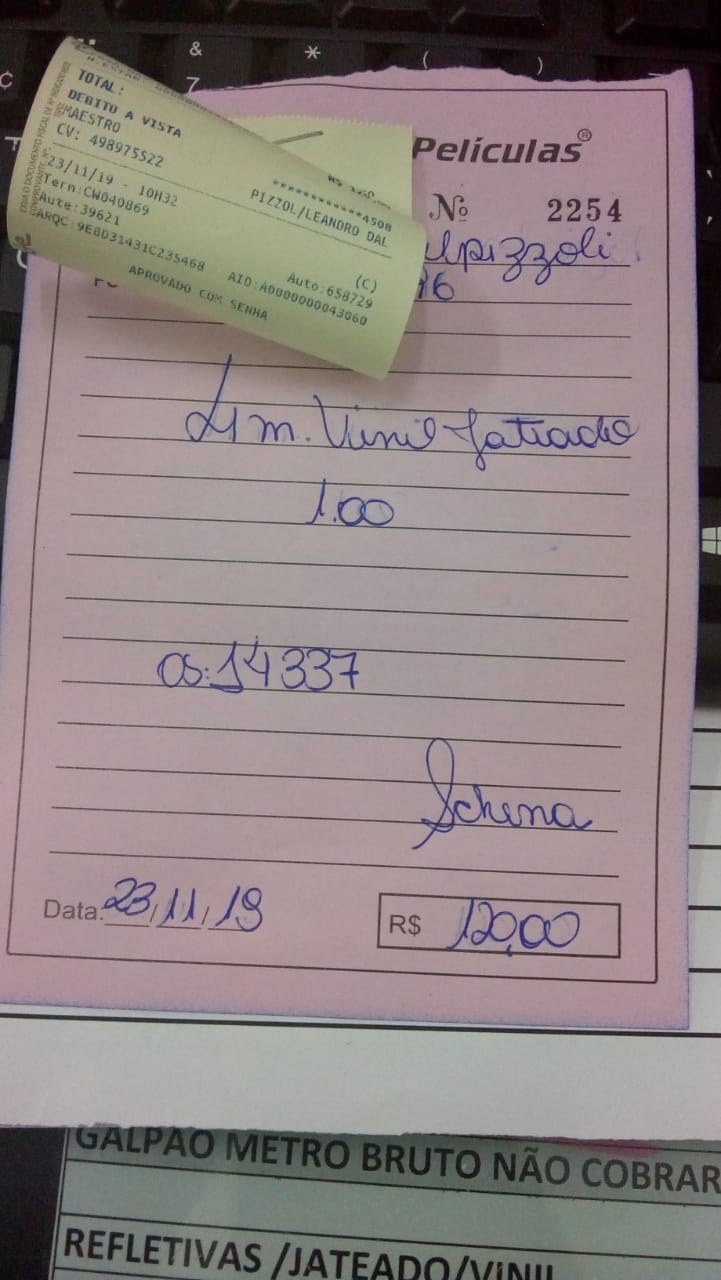 TOTAL:
DEBITO A VISTA
MAESTRO
CV: 498975522
************4508
PIZZOL/LEANDRO DAL
23/11/19 - 10H32
Term:CW040869
Aute:39621
(C)
Auto:658729
ARQC:9E8D31431C235468
AID:A0000000043060
APROVADO COM SENHA
Películas®
Nº 2254
alpizzoli
16
4 m. Vinil Jateado
1.00
OS:14337
Schena
Data: 23/11/19
R$ 120,00
GALPÃO METRO BRUTO NÃO COBRAR
REFLETIVAS /JATEADO/VINIL